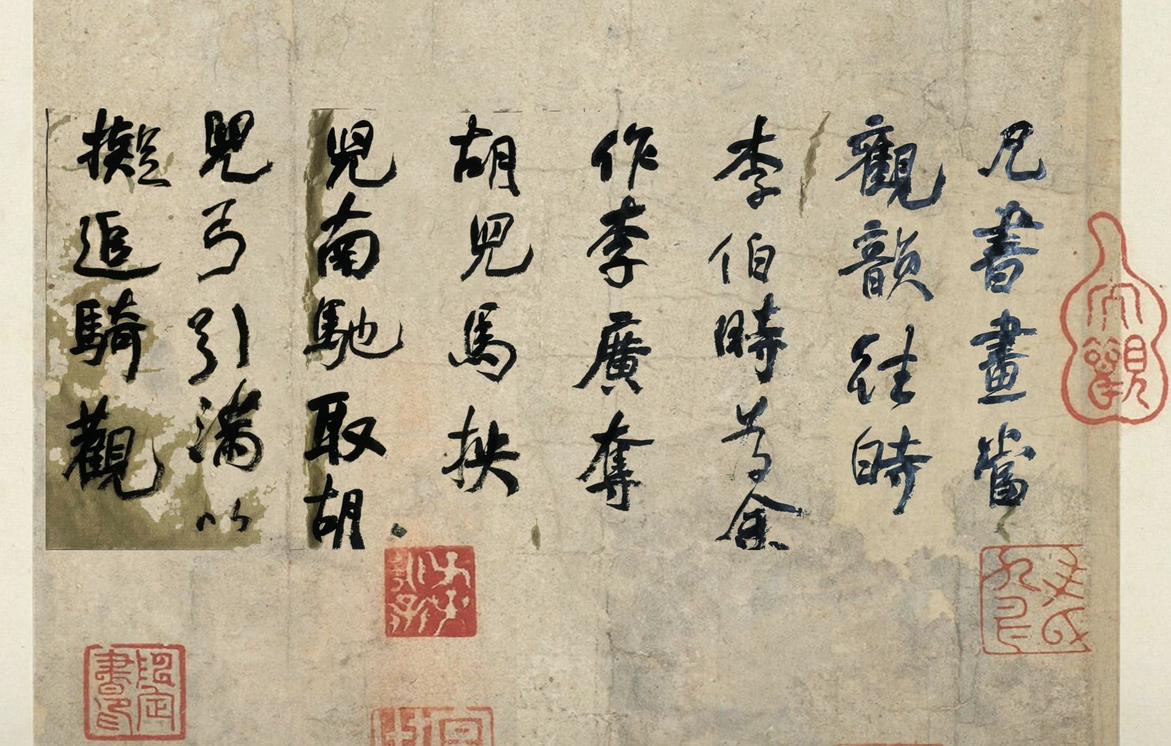 凡書畫當
觀韻往時
李伯時為余
作李廣奪
胡兒馬挾
兒南馳取胡
兒弓引滿以
擬追騎觀
大觀